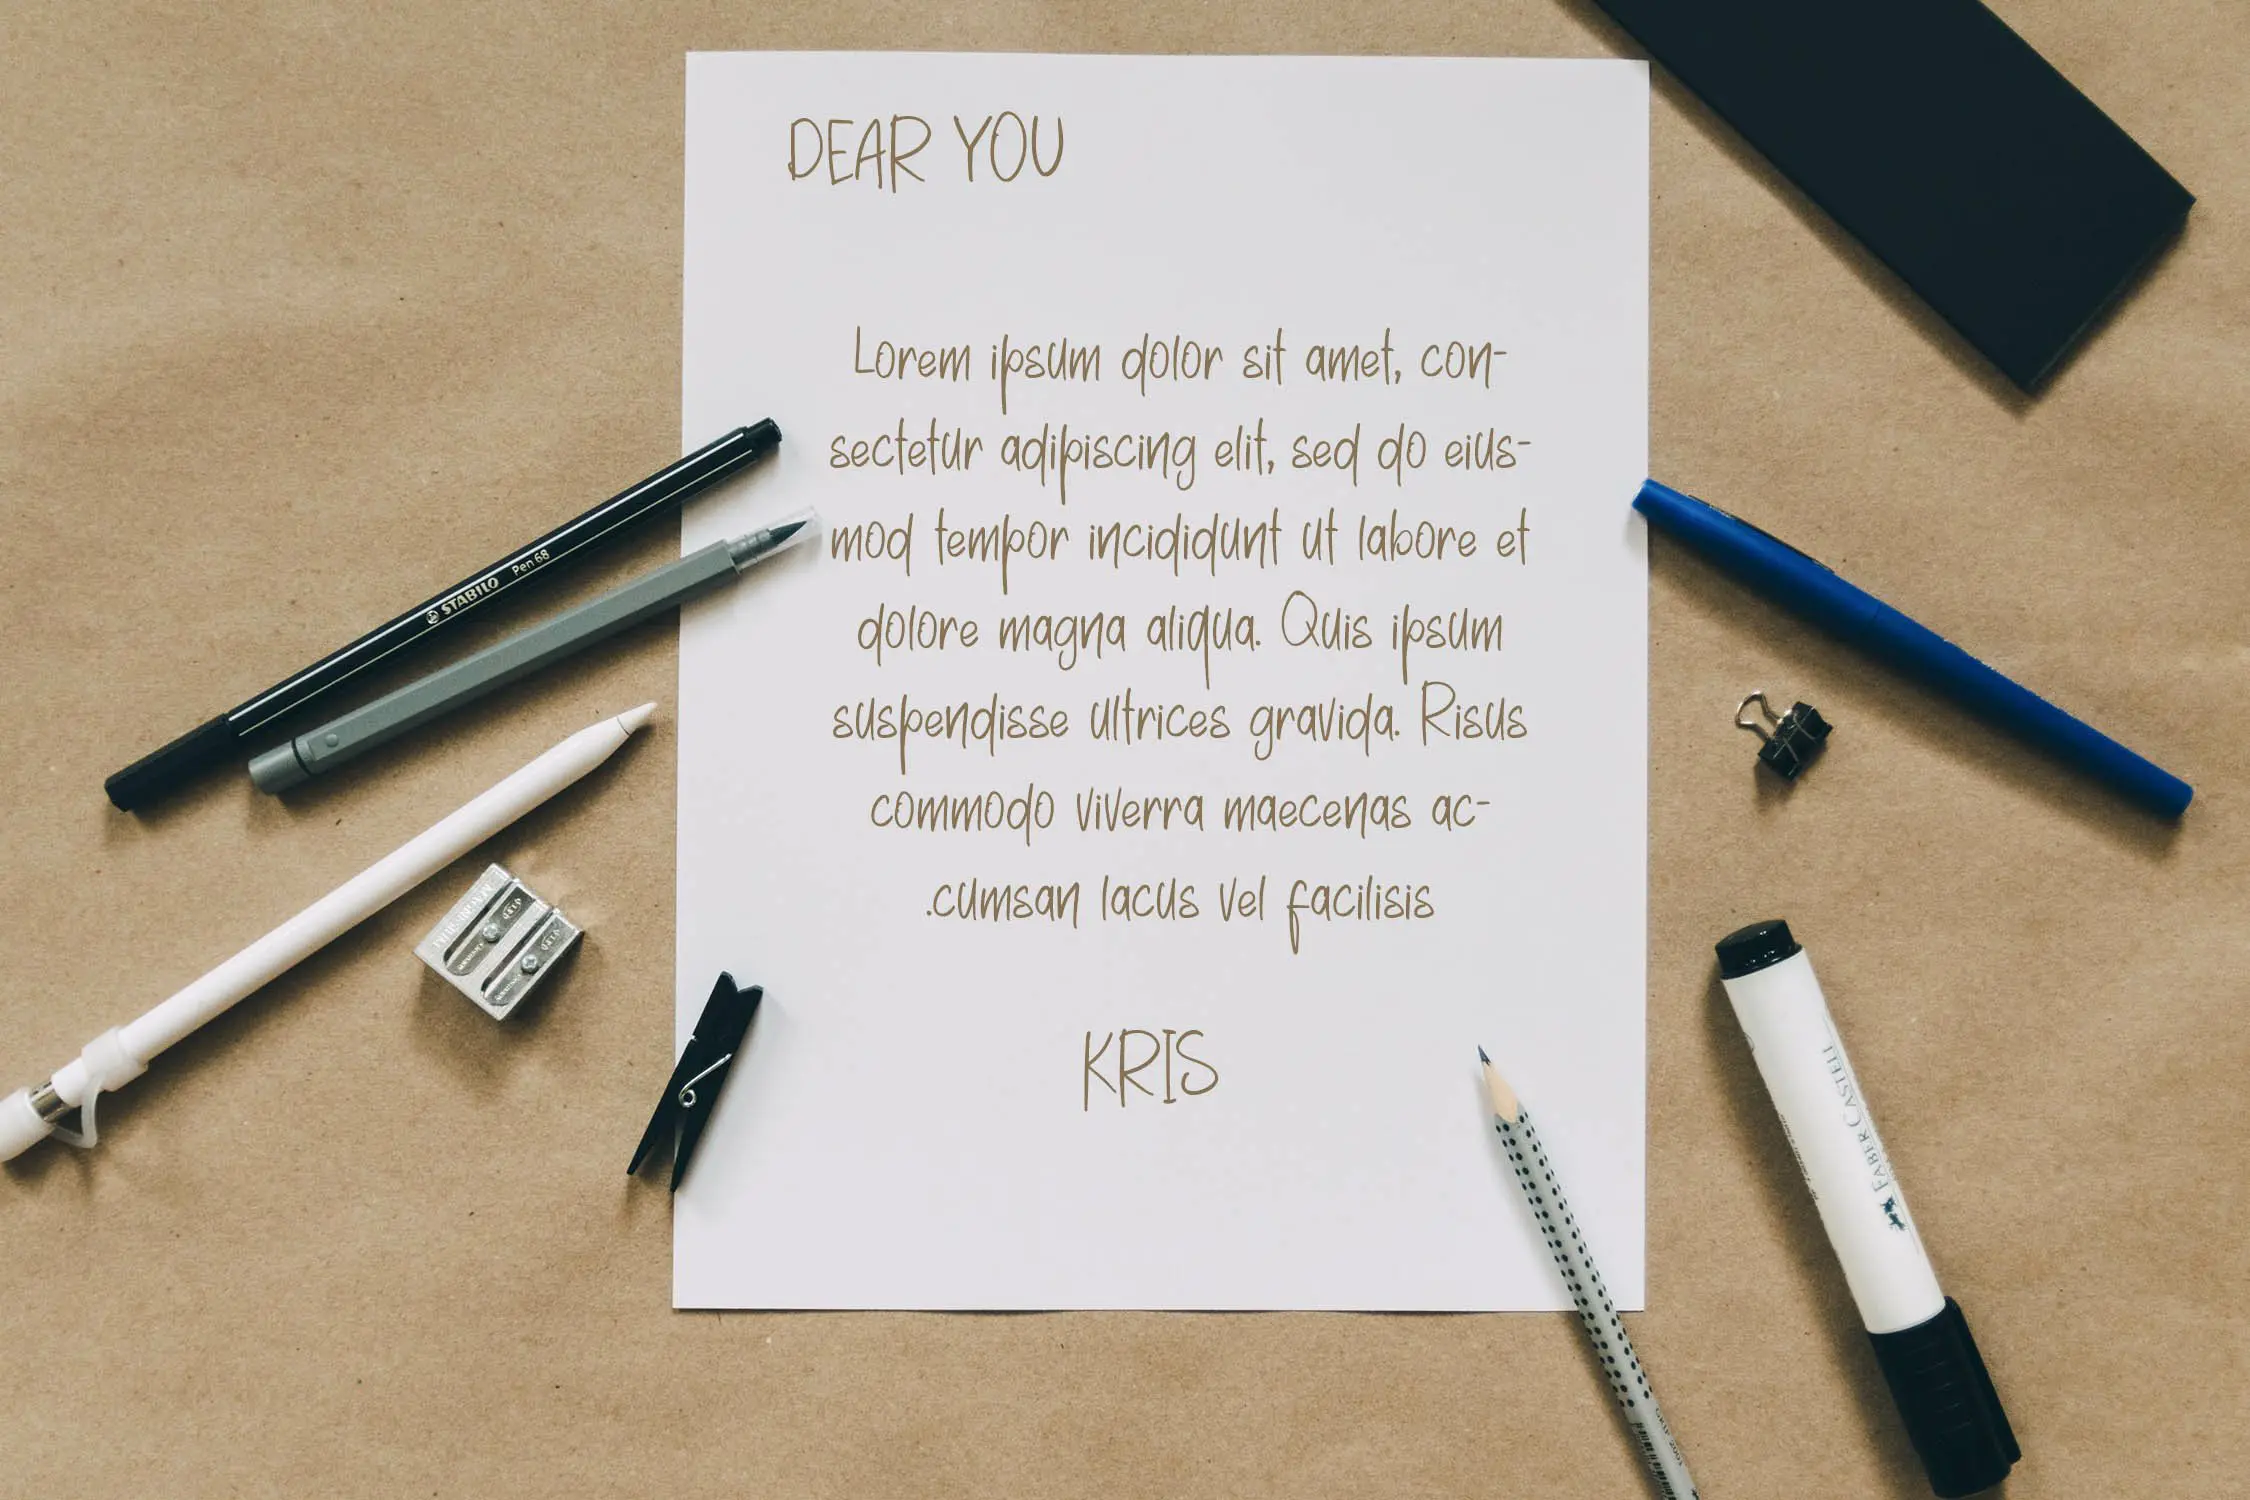 DEAR YOU
Lorem ipsum dolor sit amet, con-
sectetur adipiscing elit, sed do eius-
mod tempor incididunt ut labore et
dolore magna aliqua. Quis ipsum
suspendisse ultrices gravida. Risus
commodo viverra maecenas ac-
.cumsan lacus vel facilisis
KRIS
STABILO Pen 68
FABER CASTELL